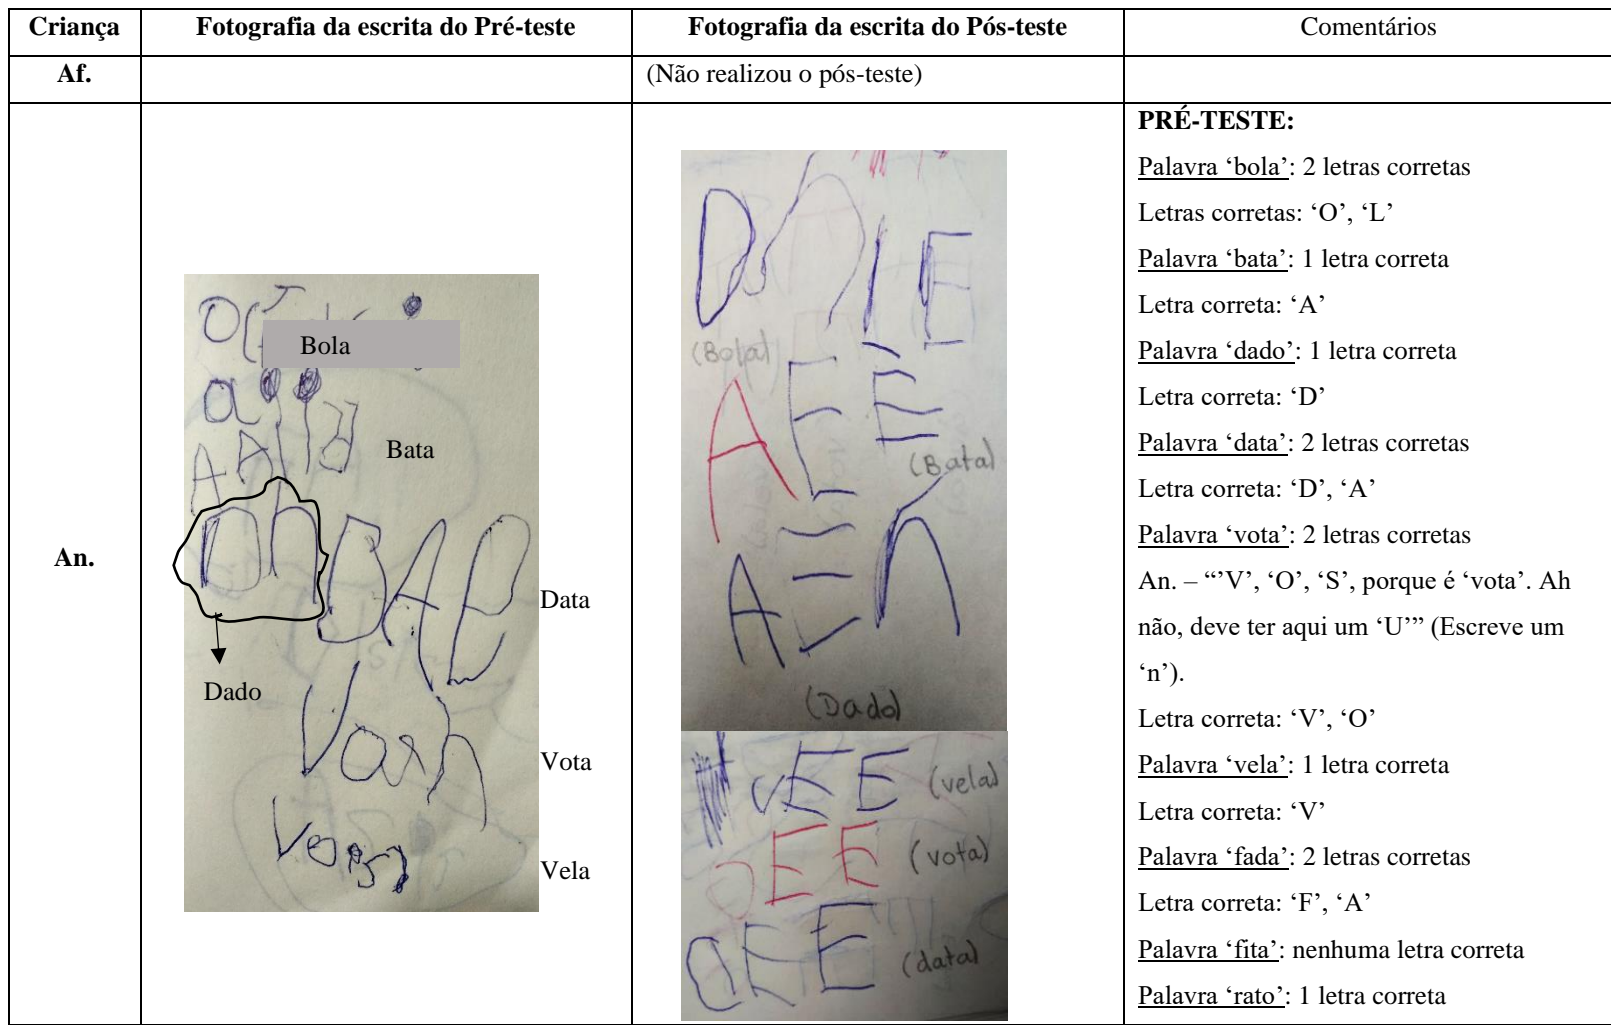 Criança Fotografia da escrita do Pré-teste Fotografia da escrita do Pós-teste Comentários
Af. (Não realizou o pós-teste)
An.
Bola
Bata
Data
Dado
Vota
Vela
(Bola)
A E E
(Bata)
(Dado)
v E E (vela)
O E E (vota)
(data)
PRÉ-TESTE:
Palavra ‘bola’: 2 letras corretas
Letras corretas: ‘O’, ‘L’
Palavra ‘bata’: 1 letra correta
Letra correta: ‘A’
Palavra ‘dado’: 1 letra correta
Letra correta: ‘D’
Palavra ‘data’: 2 letras corretas
Letra correta: ‘D’, ‘A’
Palavra ‘vota’: 2 letras corretas
An. – “’V’, ‘O’, ‘S’, porque é ‘vota’. Ah
não, deve ter aqui um ‘U’” (Escreve um
‘n’).
Letra correta: ‘V’, ‘O’
Palavra ‘vela’: 1 letra correta
Letra correta: ‘V’
Palavra ‘fada’: 2 letras corretas
Letra correta: ‘F’, ‘A’
Palavra ‘fita’: nenhuma letra correta
Palavra ‘rato’: 1 letra correta